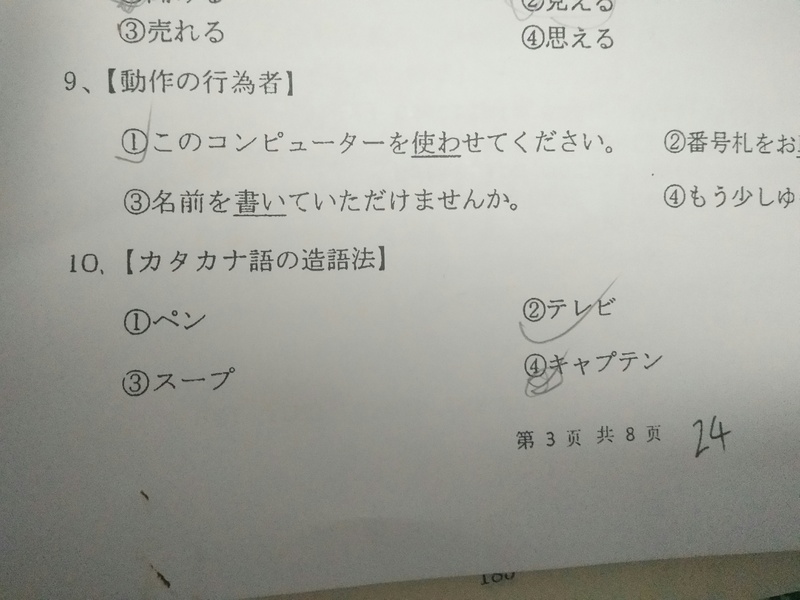 ②見える
③売れる ④思える
9、【動作の行為者】
①このコンピューターを使わせてください。 ②番号札をお
③名前を書いていただけませんか。 ④もう少しゆ
10、【カタカナ語の造語法】
①ペン ②テレビ
③スープ ④キャプテン
第 3 页 共 8 页 24
180